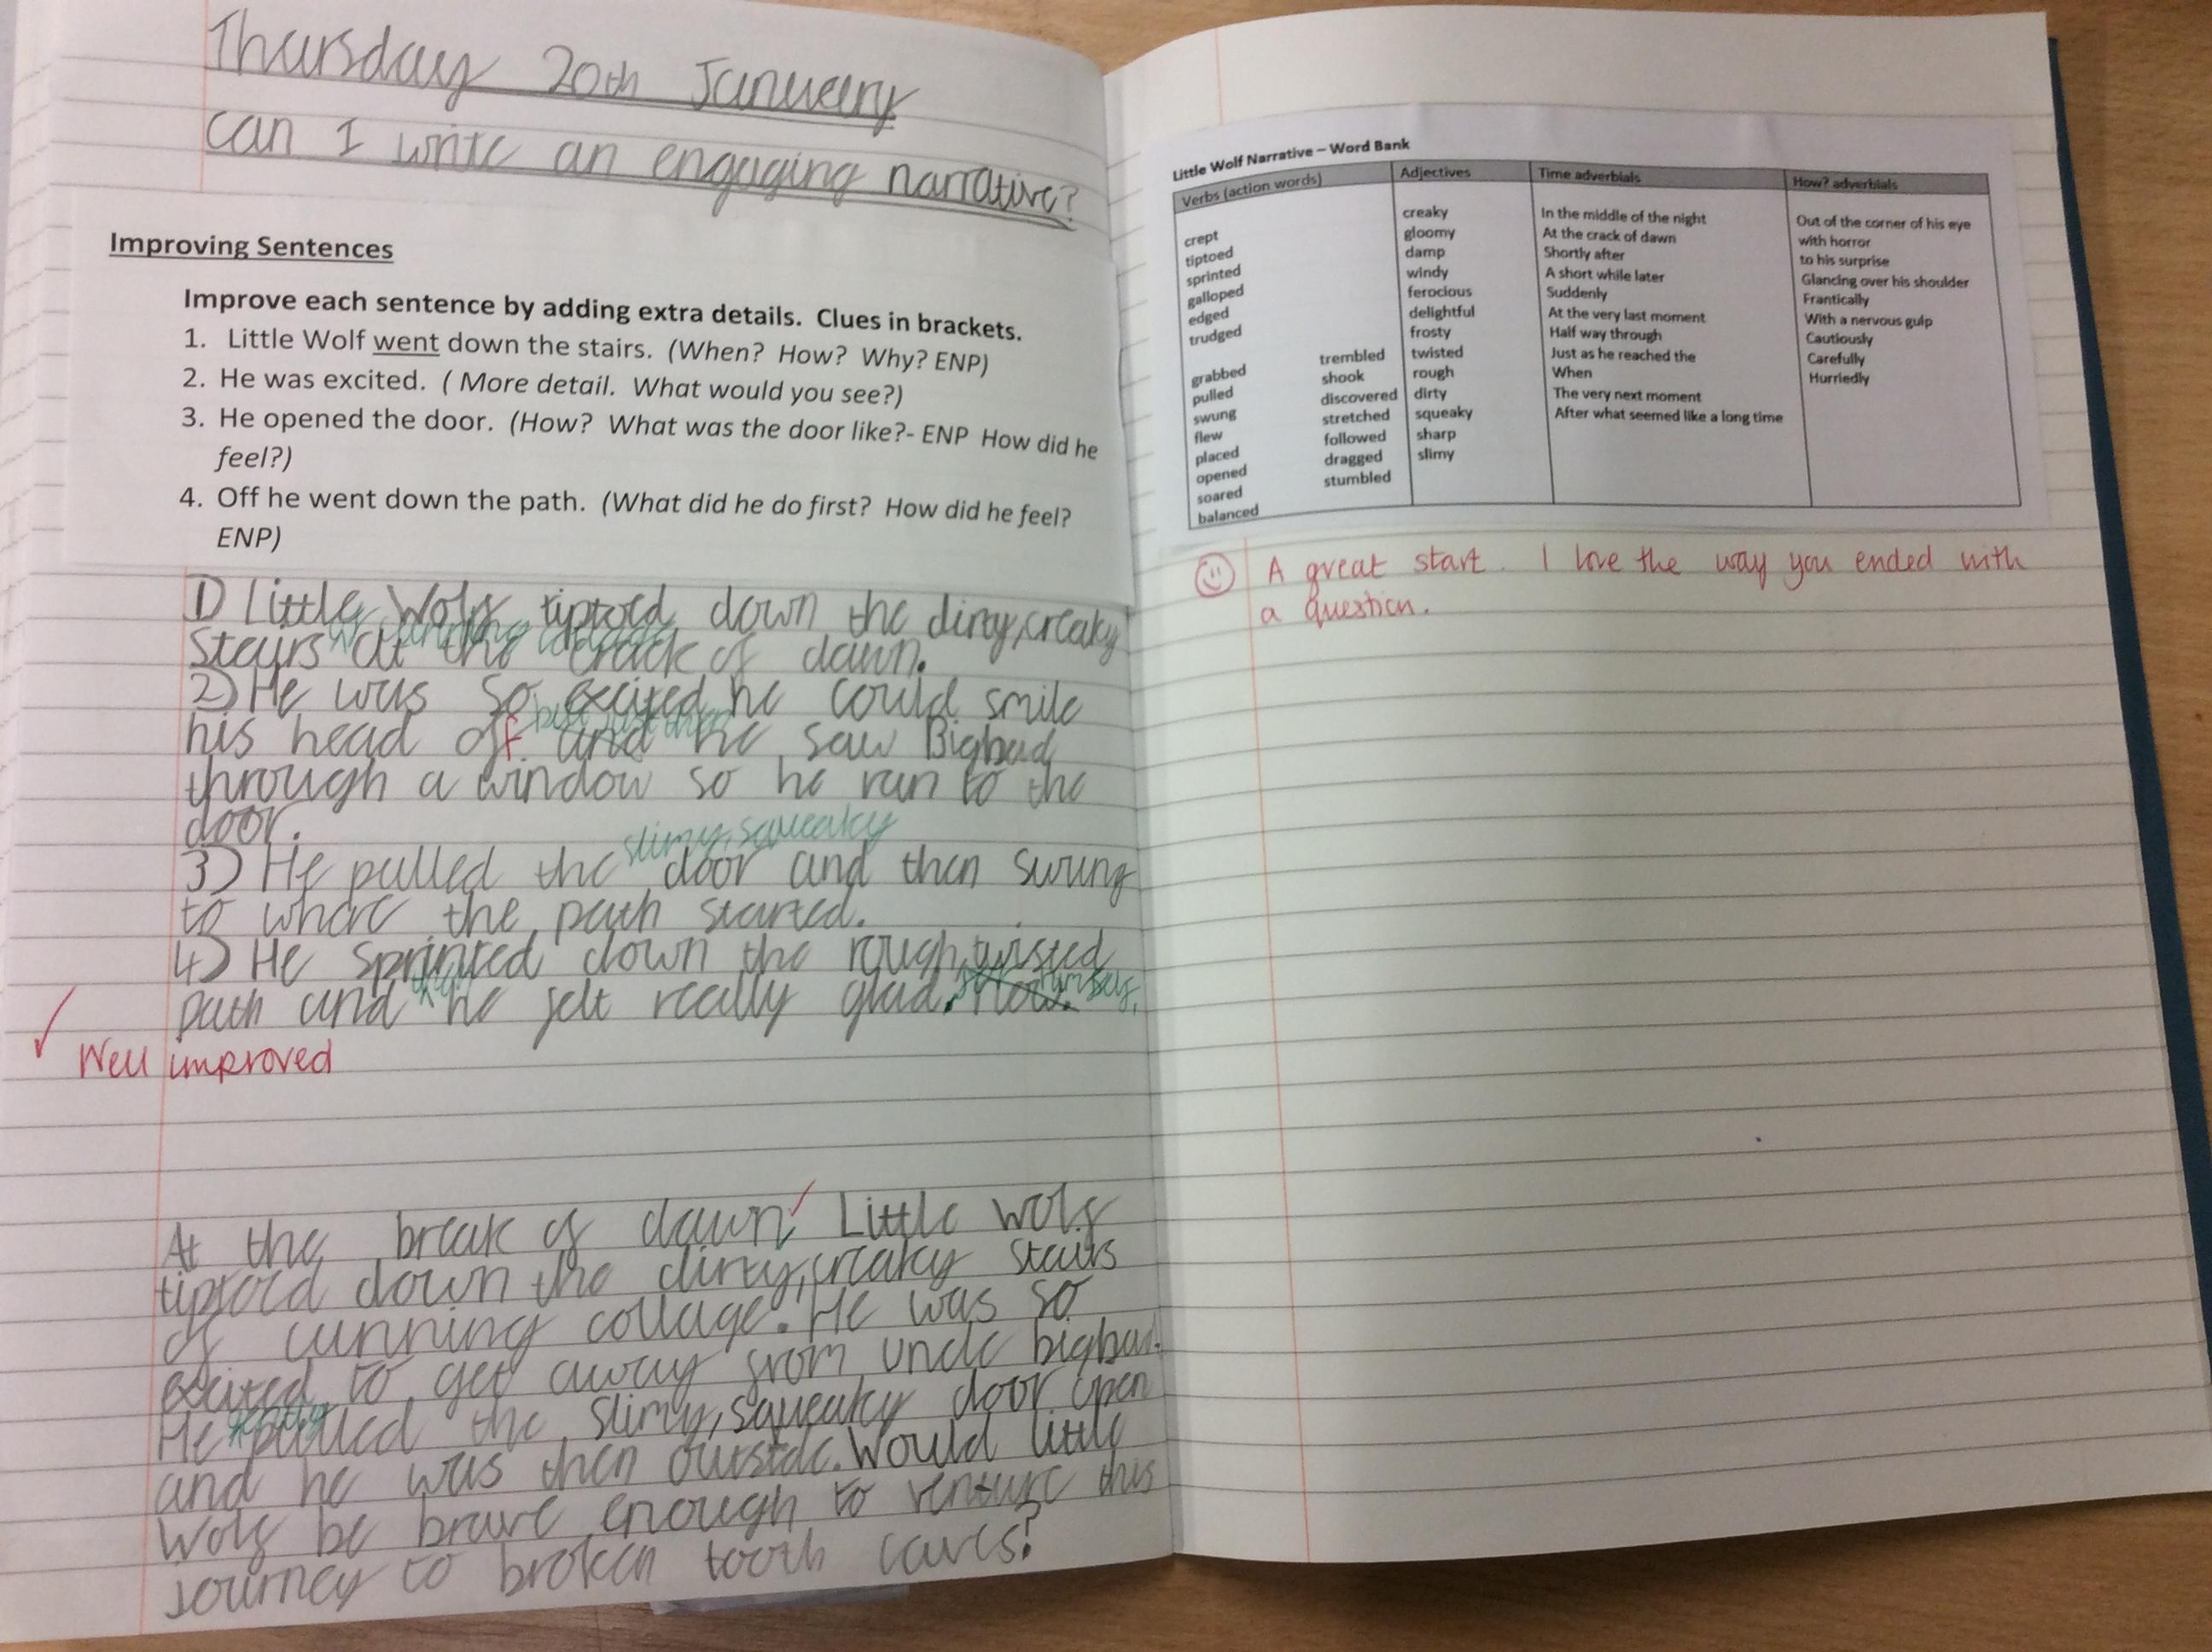 Thursday 20th Janueary
can I write an engaging narrative?
Improving Sentences
Improve each sentence by adding extra details. Clues in brackets.
1. Little Wolf went down the stairs. (When? How? Why? ENP)
2. He was excited. ( More detail. What would you see?)
3. He opened the door. (How? What was the door like?- ENP How did he
feel?)
4. Off he went down the path. (What did he do first? How did he feel?
ENP)
1) Little Wolf tiptoed down the dirty,creaky
of cunning collage
stairs at the crack of dawn.
2) He was so excited he could smile
but just then
his head off. and he saw Bigbad
through a window so he ran to the
door.
slimy, squeaky
3) He pulled the door and then swung
to where the path started.
4) He sprinted down the rough,twisted
path and he felt really glad. now.
Well improved
At the break of dawn, Little wolf
tiptoed down the dirty,creaky stairs
of cunning collage. He was so
excited to get away from uncle bigbad.
He pulled the slimy,squeaky door open
and he was then outside. Would little
Wolf be brave enough to venture this
journey to broken tooth caves?
Little Wolf Narrative – Word Bank
Verbs (action words) Adjectives Time adverbials How? adverbials
crept
tiptoed
sprinted
galloped
edged
trudged
grabbed
pulled
swung
flew
placed
opened
soared
balanced
trembled
shook
discovered
stretched
followed
dragged
stumbled
creaky
gloomy
damp
windy
ferocious
delightful
frosty
twisted
rough
dirty
squeaky
sharp
slimy
In the middle of the night
At the crack of dawn
Shortly after
A short while later
Suddenly
At the very last moment
Half way through
Just as he reached the
When
The very next moment
After what seemed like a long time
Out of the corner of his eye
with horror
to his surprise
Glancing over his shoulder
Frantically
With a nervous gulp
Cautiously
Carefully
Hurriedly
A great start. I love the way you ended with
a question.